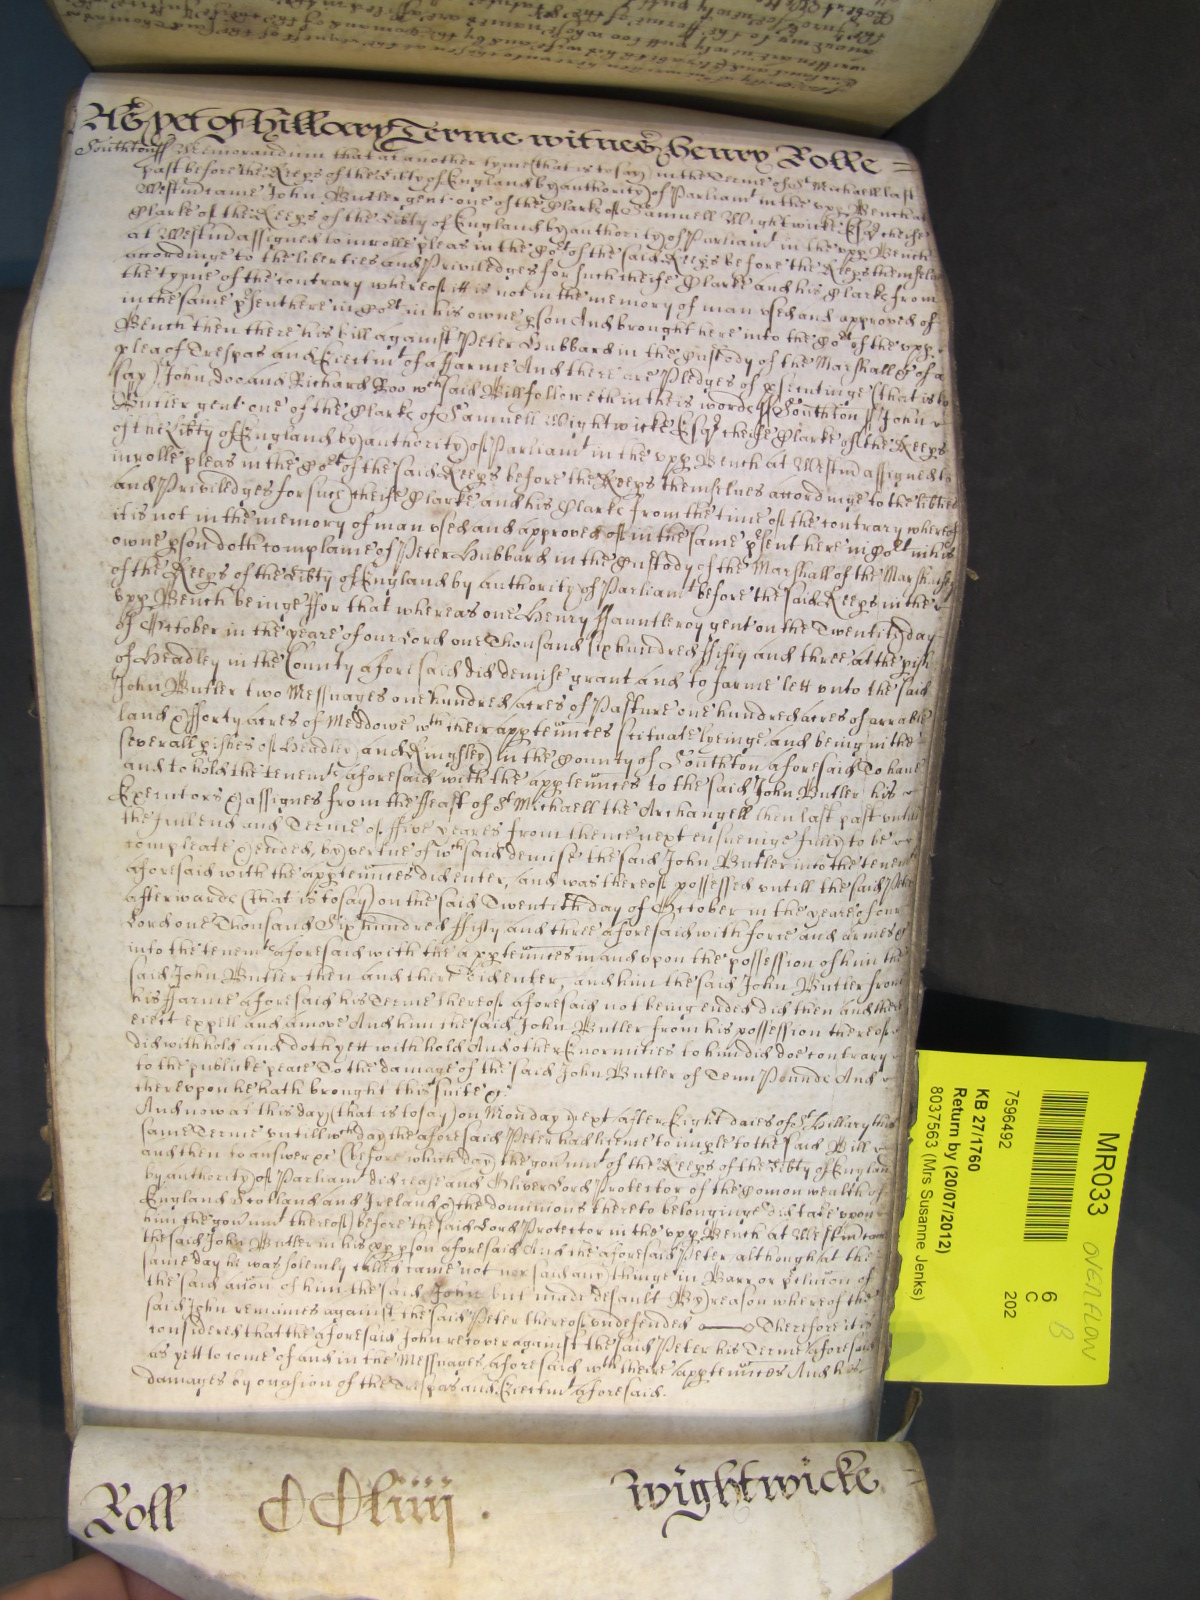 As yet of Hillary Terme witnes Henry Rolle
Southton ss Memorandum that at another tyme (that is to say) in the Terme of St Michaell last
past before the Keeps of the Libty of England by authority of Parliamt in the vpp Bench at
Westm came John Butler gent one of the Clarks of Samuell Wightwicke Esqr cheife
Clarke of the Keeps of the Libty of England by authority of Parliamt in the vpp Bench
at Westm assigned to inrolle pleas in the Cort of the said Keeps before the Keeps themselves
accordinge to the liberties and Priviledges for such cheife Clarke and his Clarks from
the tyme of the contrary whereof itt is not in the memory of man vsed and approved of
in the same psent here in Cort in his owne pson And brought here into the Cort of the vpp
Bench then there his bill against Peter Hubbard in the Custody of the Marshall &c of a
plea of Trespas and Eiectmt of a ffarme And there are Pledges of psecutinge (that is to
say) John Doo and Richard Roo wch said Bill followeth in theis words ss Southton ss John
Butler gent one of the Clarks of Samuell Wightwicke Esqr cheife Clarke of the Keeps
of the Libty of England by authority of Parliamt in the vpp Bench at Westm assigned to
inrolle pleas in the Cort of the said Keeps before the Keeps themselves accordinge to the libties
and Priviledges for such cheife Clarke and his Clarks from the time of the contrary whereof
it is not in the memory of man vsed and approved of in the same psent here in Cort in his
owne pson doth complaine of Peter Hubbard in the Custody of the Marshall of the Marshalsey
of the Keeps of the Libty of England by authority of Parliamt before the said Keeps in the
vpp Bench beinge ffor that whereas one Henry ffauntleroy gent on the Twentith day
of October in the yeare of our Lord one Thousand six hundred ffifty and three at the pish
of Headley in the County aforesaid did demise grant and to farme lett vnto the said
John Butler two Messuages one hundred acres of Pasture one hundred acres of arrable
land & fforty acres of Meddowe wth their apptennces scituate lyeinge and being in the
severall pishes of Headley and Kingsley in the County of Southton aforesaid To have
and to hold the tenemts aforesaid with the apptennces to the said John Butler his
Executors & assignes from the ffeast of St Michaell the Archangell then last past vntill
the full end and Terme of ffive yeares from thence next ensueinge fully to be
compleate & ended, by vertue of wch said demise the said John Butler into the tenemts
aforesaid with the apptennces did enter, and was thereof possessed vntill the said Peter
afterwards (that is to say) on the said Twentith day of October in the yeare of our
Lord one Thousand Six hundred ffifty and three aforesaid with force and armes &c
into the tenemts aforesaid with the apptennces in and vpon the possession of him the
said John Butler then and there did enter, and him the said John Butler from
his ffarme aforesaid his Terme thereof aforesaid not being ended did then and there
eiect expell and amove And him the said John Butler from his possession thereof
did withhold and doth yett withhold And other Enormities to him did doe contrary
to the publike peace To the damage of the said John Butler of Tenn Pounds And
thereupon he hath brought this suite &c
And now at this day (that is to say) on Monday next after Eight daies of St Hillary this
same Terme vntill wch day the aforesaid Peter had licence to imple to the said Bill
and then to answer &c (before which day) the govnmt of the Keeps of the Libty of England
by authority of Parliamt did cease and Oliver Lord Protector of the Comon wealth of
England Scotland and Ireland & the dominions thereto belonginge did take vpon
him the govnmt thereof) before the said Lord Protector in the vpp Bench at Westm came
the said John Butler in his pp pson aforesaid And the aforesaid Peter although at the
same day he was solemly called came not nor said any thinge in Barr or pclusion of
the said accon of him the said John but made default By reason whereof the
said John remaines against the said Peter thereof vndefended Therefore it is
considered that the aforesaid John recover against the said Peter his Terme aforesaid
as yett to come of and in the Messuages aforesaid wth their apptennces And his
damages by occasion of the Trespas and Eiectmt aforesaid.
Roll CCliiij . Wightwicke
MR033 OVERFLOW
6 B
C
202
7596492
KB 27/1760
Return by (20/07/2012)
8037563 (Mrs Susanne Jenks)